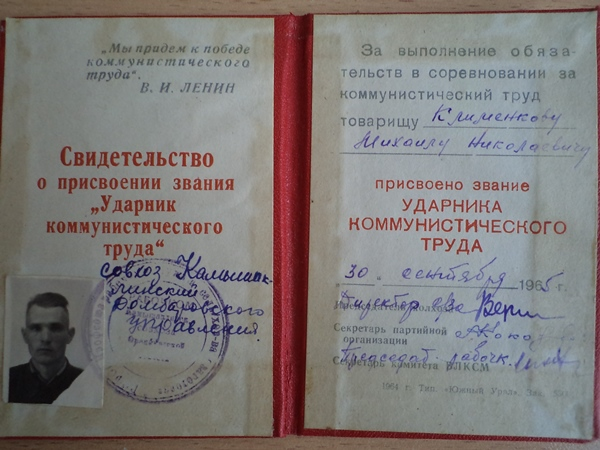 „Мы придем к победе
коммунистического
труда“.
В. И. ЛЕНИН
Свидетельство
о присвоении звания
„Ударник
коммунистического
труда“
совхоз
Домбаровского
управления
За выполнение обяза-
тельств в соревновании за
коммунистический труд
товарищу Клименкову
Михаилу Николаевичу
присвоено звание
УДАРНИКА
КОММУНИСТИЧЕСКОГО
ТРУДА
30 сентября 1965 г.
Директор
Секретарь партийной
организации
Председат. рабоч.
Секретарь комитета ВЛКСМ
1964 г. Тип. «Южный Урал». Зак.